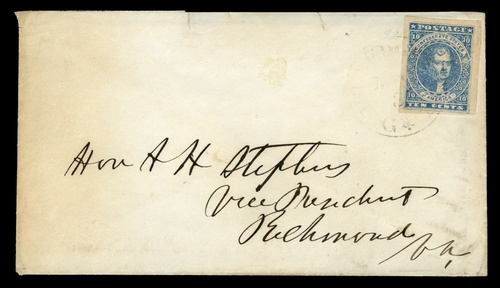 POSTAGE
10 10
CONFEDERATE STATES
OF
AMERICA
10 10
TEN CENTS
Ga
Hon A H Stephens
Vice President
Richmond
Va,